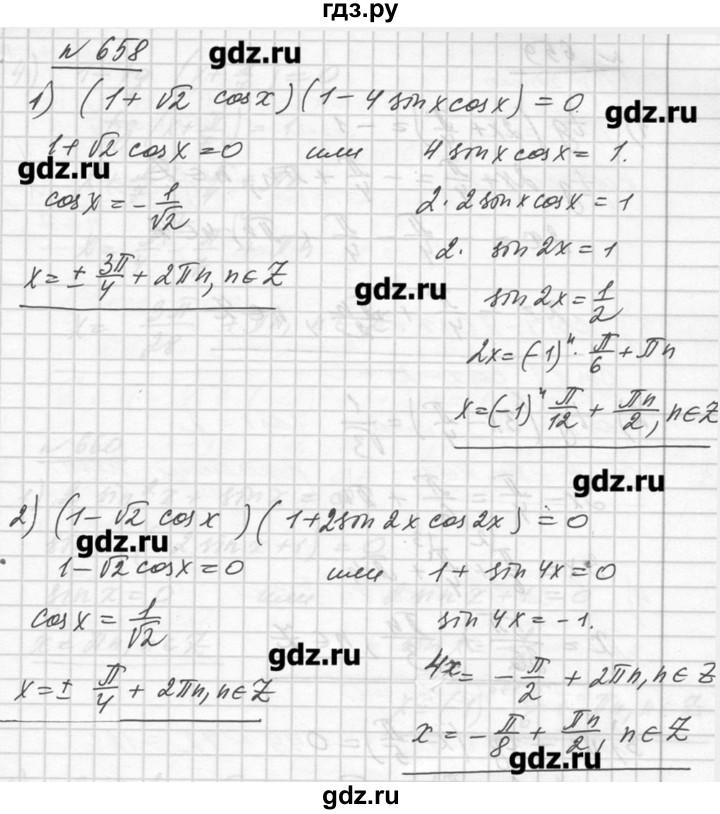 гдз.ру
№ 658
gdz.ru
1) (1 + √2 cos x)(1 - 4 sin x cos x) = 0.
gdz.ru
1 + √2 cos x = 0 или 4 sin x cos x = 1.
gdz.ru
cos x = - 1/√2
2 · 2 sin x cos x = 1
2 · sin 2x = 1
x = ± 3π/4 + 2πn, n ∈ Z
gdz.ru
sin 2x = 1/2
2x = (-1)ⁿ · π/6 + πn
x = (-1)ⁿ π/12 + πn/2, n ∈ Z
gdz.ru
2) (1 - √2 cos x)(1 + 2 sin 2x cos 2x) = 0
gdz.ru
1 - √2 cos x = 0 или 1 + sin 4x = 0
cos x = 1/√2
sin 4x = -1.
gdz.ru
x = ± π/4 + 2πn, n ∈ Z
4x = - π/2 + 2πn, n ∈ Z
x = - π/8 + πn/2, n ∈ Z
gdz.ru
gdz.ru